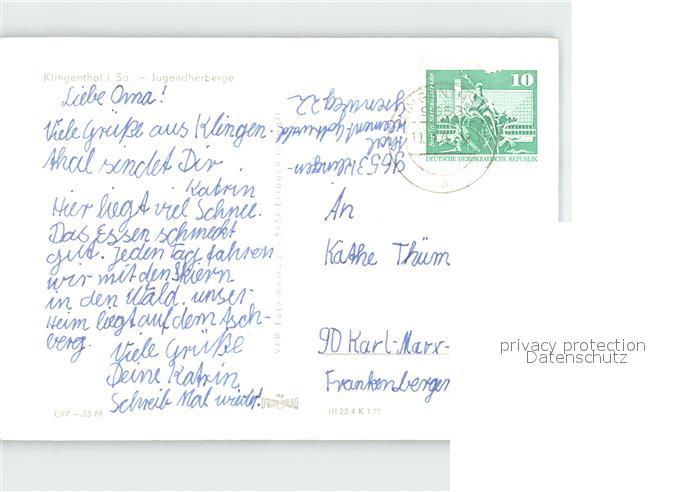 Klingenthal i. Sa. — Jugendherberge
Liebe Oma!
Viele Grüße aus Klingen-
thal sendet Dir
Katrin
Hier liegt viel Schnee.
Das Essen schmeckt
gut. Jeden Tag fahren
wir mit den Skiern
in den Wald. unser
Heim liegt auf dem Asch-
berg.
Viele Grüße
Deine Katrin
Schreib Mal wieder!
EVP —,25 M
VEB Foto-Verlag
9653 Klingen-
thal
Grenzweg 22
10
Berlin
DEUTSCHE DEMOKRATISCHE REPUBLIK
a
An
Käthe Thüm
90 Karl-Marx-
Frankenberger
III 23 4 K 1 72
privacy protection
Datenschutz